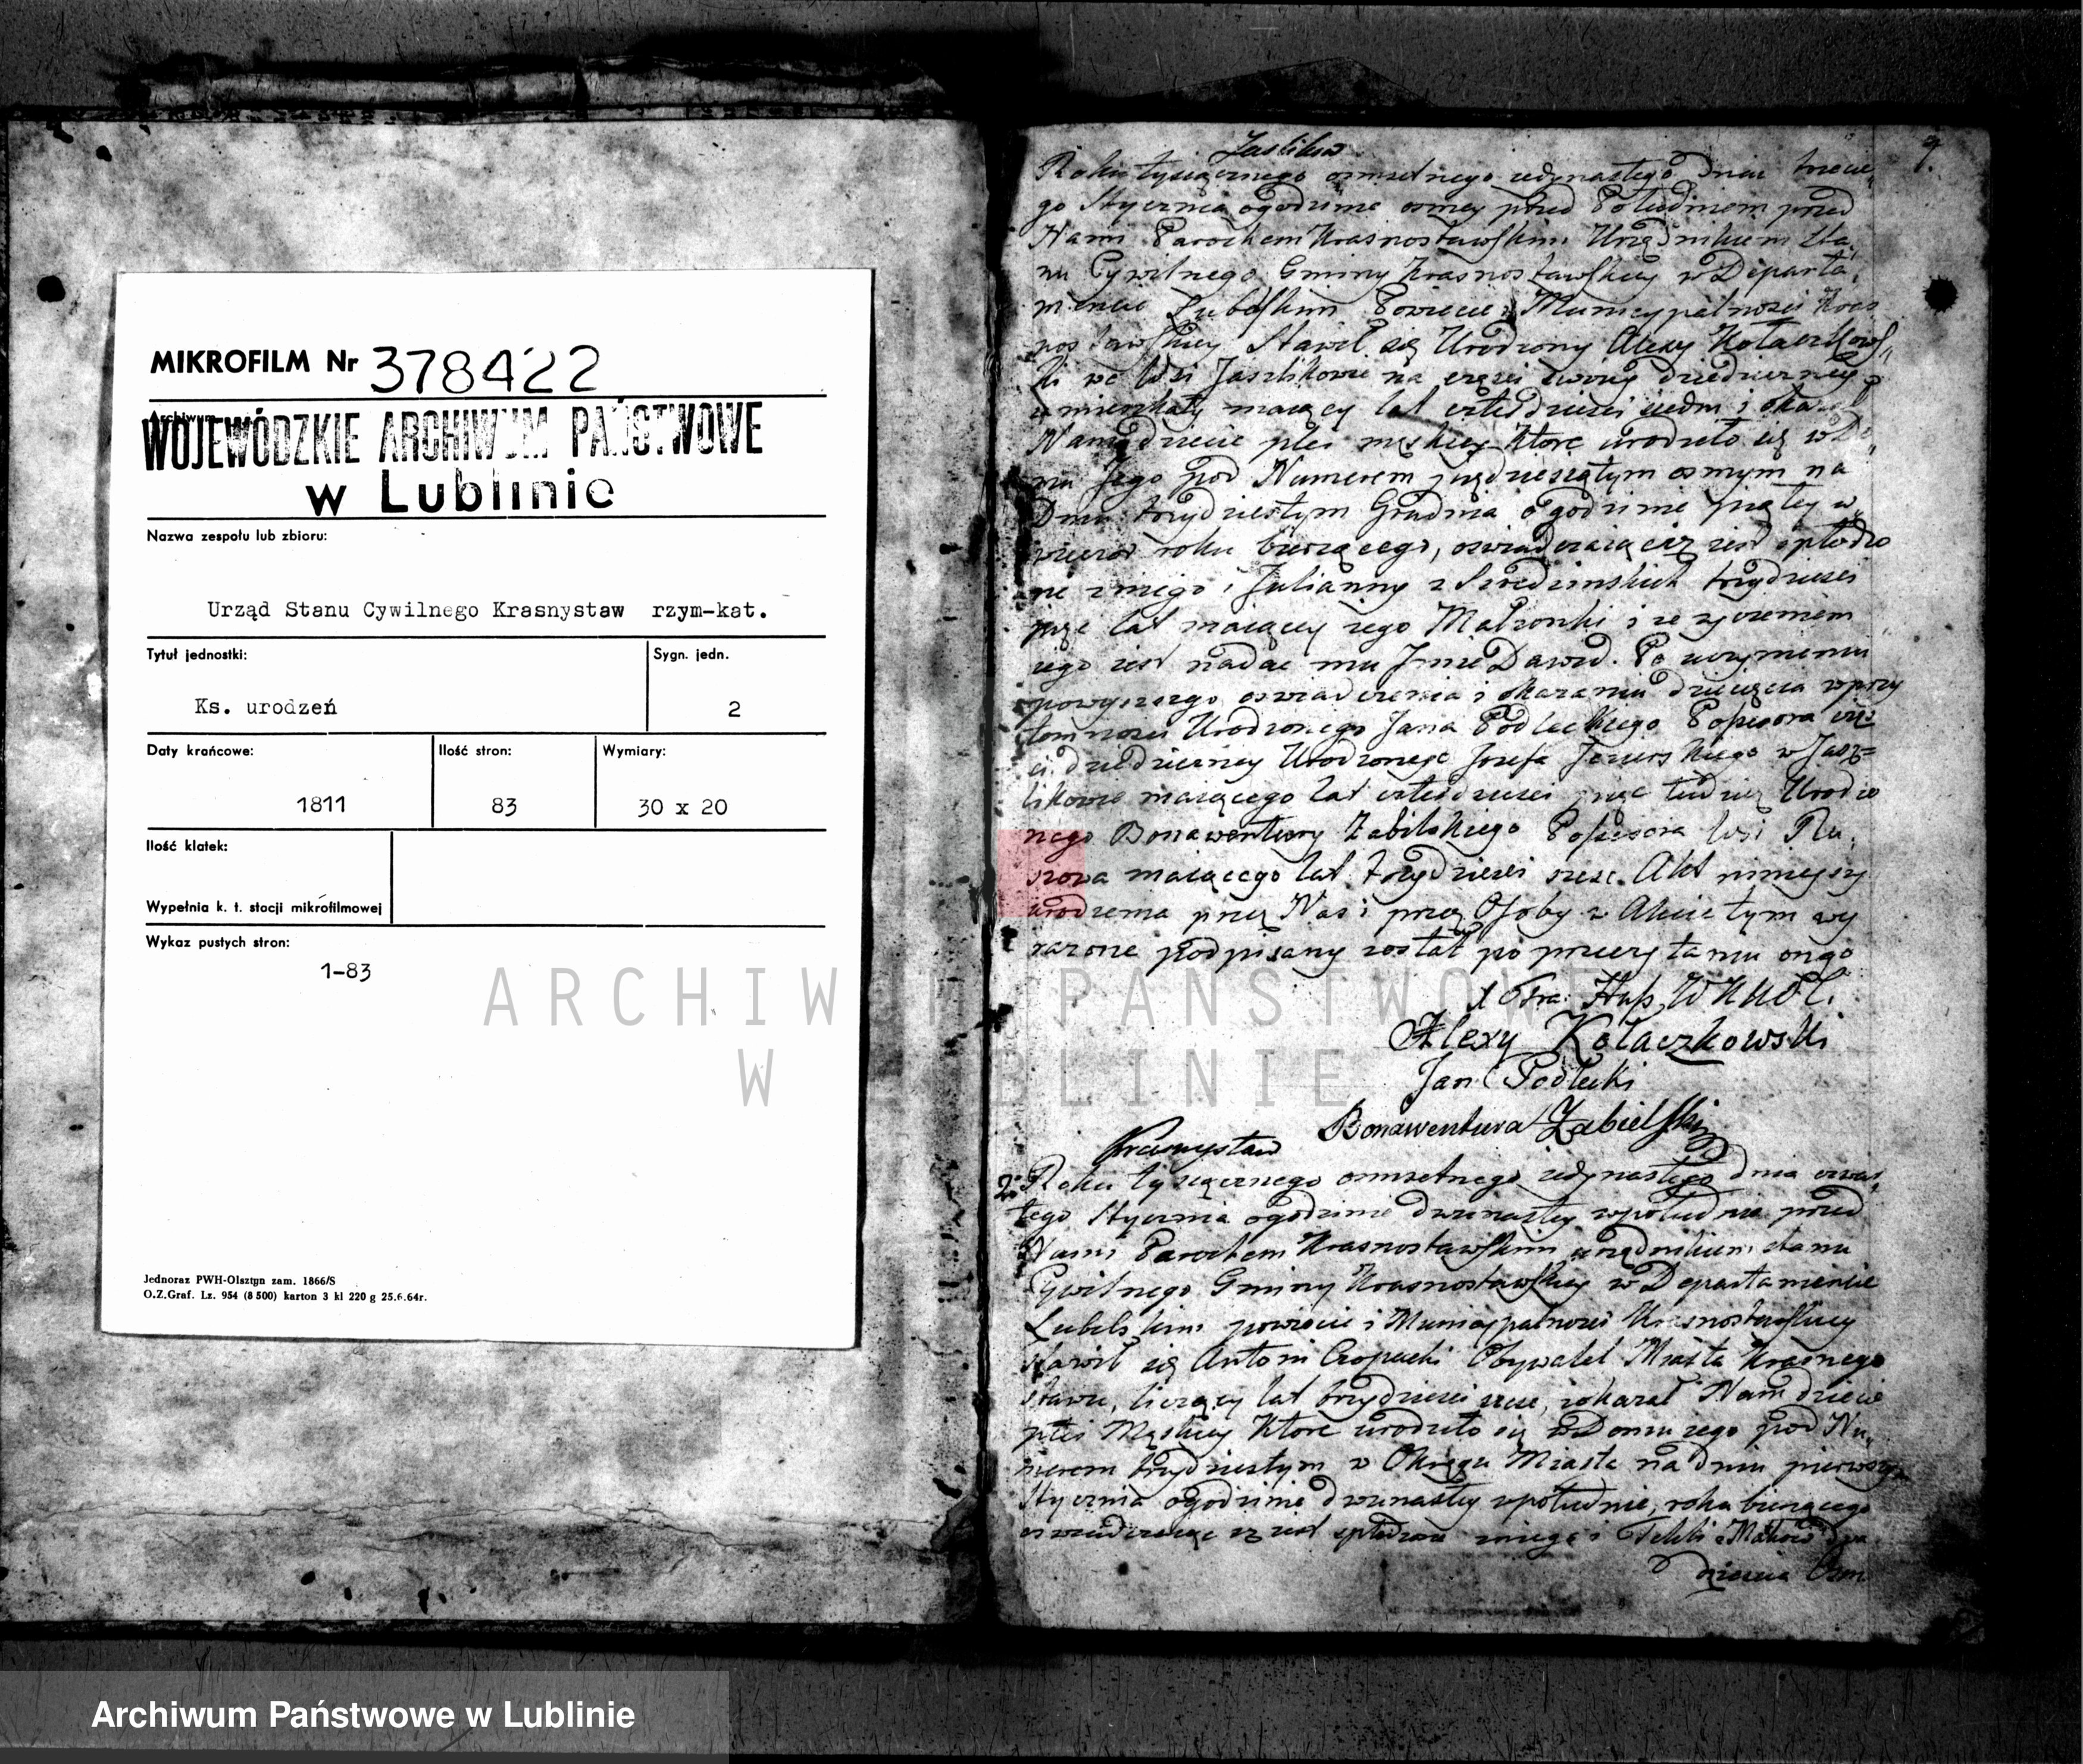 MIKROFILM Nr 378422
Archiwum
WOJEWÓDZKIE ARCHIWUM PAŃSTWOWE
w Lublinie
Nazwa zespołu lub zbioru:
Urząd Stanu Cywilnego Krasnystaw rzym-kat.
Tytuł jednostki:
Sygn. jedn.
Ks. urodzeń
2
Daty krańcowe:
Ilość stron:
Wymiary:
1811
83
30 x 20
Ilość klatek:
Wypełnia k. t. stacji mikrofilmowej
Wykaz pustych stron:
1-83
Jednoraz PWH-Olsztyn zam. 1866/S
O.Z.Graf. Lz. 954 (8 500) karton 3 kl 220 g 25.6.64r.
Roku tysiącznego osmsetnego jedynastego Dnia trzecie,
go Stycznia o godzinie osmey przed Południem przed
Nami Parochem Krasnostawskim Urzędnikiem Sta,
nu Cywilnego Gminy Krasnostawskiey w Departa,
mencie Lubelskim Powiecie i Municypalnosci Kras
nostawskiey Stawił się Urodzony Alexy Kołaczkows,,
ki we Wsi Jaszlikowie na częsci swoiey dziedziczney
zamieszkały maiący lat czterdziesci siedm i okazał
Nam dziecie płci męskiey ktore urodziło się w Do,,
mu Jego pod Numerem piędziesiątym osmym na
Dniu trzydziestym Grudnia o godzinie piątey w,
wieczor roku bieżącego, oswiadczaiąc iż iest spłodzo
ne z niego i Julianny z trzydziesci
pięc lat maiącey iego Małzonki i ze zyczeniem
iego iest nadac mu Jmie Dawid. Po uczynieniu
powyzszego oswiadczenia i okazaniu dziecięcia w przy
tomnosci Urodzonego Jana Podleckiego Possesora częs
ci dziedziczney Urodzonego Jozefa w Jasz=
likowie maiącego lat czterdziesci pięc tudzież Urodzo
nego Bonawentury Zabilskiego Possesora Wsi Ru,
maiącego lat trzydziesci szesc. Akt ninieyszy
urodzenia przez Nas i przez Osoby w Akcie tym wy
razone podpisany został po przeczytaniu onego
Alexy Kołaczkowski
Jan Podlecki
Bonawentura Zabielski
Krasnystaw
2. Roku tysiącznego osmsetnego jedynastego Dnia czwar,
tego Stycznia o godzinie dwunastey w południe przed
Nami Parochem Krasnostawskim urzędnikiem stanu
Cywilnego Gminy Krasnostawskiey w Departamencie
Lubelskim powiecie i Municypalnosci Krasnostawskiey
stawił się Antoni Obywatel Miasta Krasnego
stawu, liczący lat trzydziesci szesc, i okazał Nam dziecie
płci Męskiey ktore urodziło się w Domu iego pod Nu,
merem trzydziestym w Okręgu Miasta na dniu pierwszym
Stycznia o godzinie dwunastey w południe, roku bieżącego
oswiadczaiąc iż iest spłodzone z niego i Tekli
dziescia Osm
ARCHIWUM PAŃSTWOWE
W LUBLINIE
Archiwum Państwowe w Lublinie